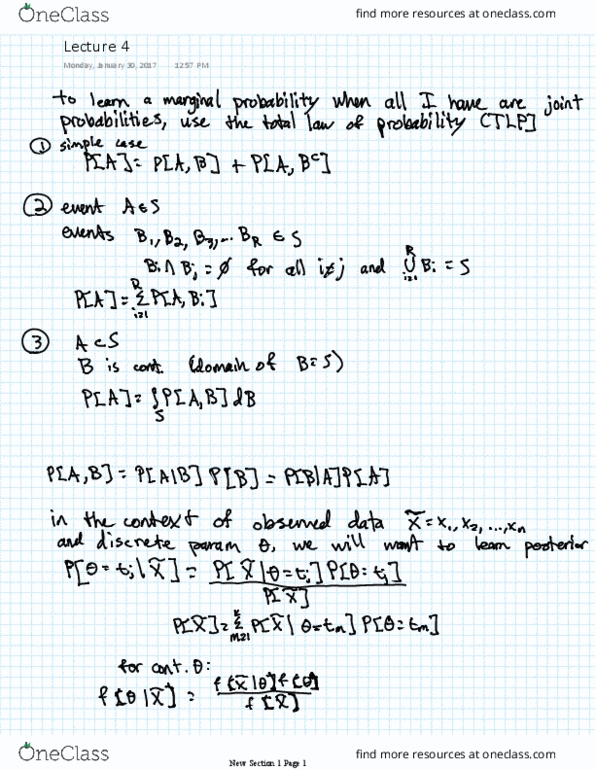 OneClass find more resources at oneclass.com
Lecture 4
Monday, January 30, 2017 12:57 PM
to learn a marginal probability when all I have are joint
probabilities, use the total law of probability [TLP]
① simple case
P[A] = P[A, B] + P[A, Bᶜ]
② event A∈S
events B₁, B₂, B₃, ... B_R ∈ S
Bᵢ ∩ Bⱼ = ∅ for all i≠j and ⋃ᵢ₌₁ᴿ Bᵢ = S
P[A] = Σᵢ₌₁ᴿ P[A, Bᵢ]
③ A⊂S
B is cont. (domain of B=S)
P[A] = ∫_S P[A, B] dB
P[A,B] = P[A|B] P[B] = P[B|A] P[A]
in the context of observed data x̃ = x₁, x₂, ..., xₙ
and discrete param θ, we will want to learn posterior
P[θ = tⱼ | x̃] = P[x̃ | θ = tⱼ] P[θ = tⱼ]
P[x̃]
P[x̃] = Σₘ₌₁ᵏ P[x̃ | θ = tₘ] P[θ = tₘ]
for cont. θ:
f[θ | x̃] = f[x̃ | θ] f[θ]
f[x̃]
OneClass find more resources at oneclass.com
New Section 1 Page 1